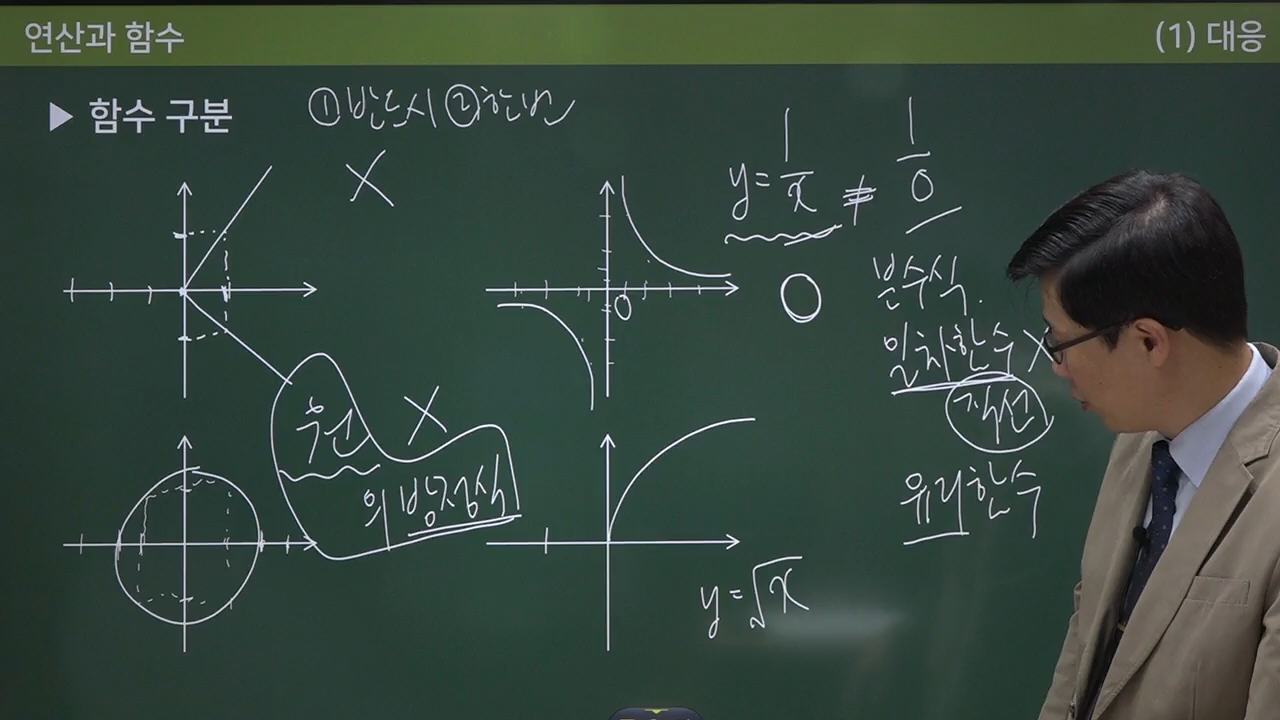 연산과 함수
(1) 대응
▶ 함수 구분
①반드시 ②한번
X
y = 1/x ≠ 1/0
0
O
분수식.
일차함수 X
직선
유리함수
원 X
의 방정식
y = √x